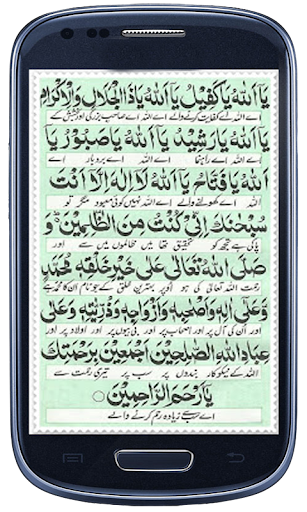 يَآ اَللّٰهُ يَا كَفِيْلُ يَآ اَللّٰهُ يَا ذَا الْجَلَالِ وَالْاِكْرَامِ
اے اللہ اے کفایت کرنے والے اے اللہ اے صاحب بزرگی اور بخشش کے
يَآ اَللّٰهُ يَا رَشِيْدُ يَآ اَللّٰهُ يَا صَبُوْرُ يَآ
اے اللہ اے راہنما اے اللہ اے بردبار اے
اَللّٰهُ يَا فَتَّاحُ يَآ اَللّٰهُ لَآ اِلٰهَ اِلَّآ اَنْتَ
اللہ اے کھولنے والے اے اللہ نہیں کوئی معبود مگر تو
سُبْحٰنَكَ اِنِّيْ كُنْتُ مِنَ الظّٰلِمِيْنَ وَ
پاکی ہے تجھ کو تحقیق تھا میں ظالموں میں سے اور
صَلَّى اللّٰهُ تَعَالٰى عَلٰى خَيْرِ خَلْقِهٖ مُحَمَّدٍ
رحمت اللہ تعالیٰ کی ہو اوپر بہترین خلق کے جو نام ان کا محمد ہے
وَّعَلٰٓى اٰلِهٖ وَاَصْحٰبِهٖ وَاَزْوَاجِهٖ وَذُرِّيّٰتِهٖ وَعَلٰى
اور ان کی آل پر اور اصحاب پر اور بی بیوں پر اور اولاد پر اور
عِبَادِ اللّٰهِ الصّٰلِحِيْنَ اَجْمَعِيْنَ بِرَحْمَتِكَ
اللہ کے نیکو کار بندوں پر سب پر تیری رحمت سے
يَآ اَرْحَمَ الرَّاحِمِيْنَ
اے سب سے زیادہ رحم کرنے والے